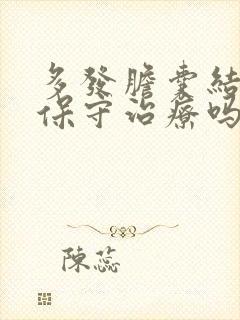 多發膽囊結
保守治療嗎
陳蕊